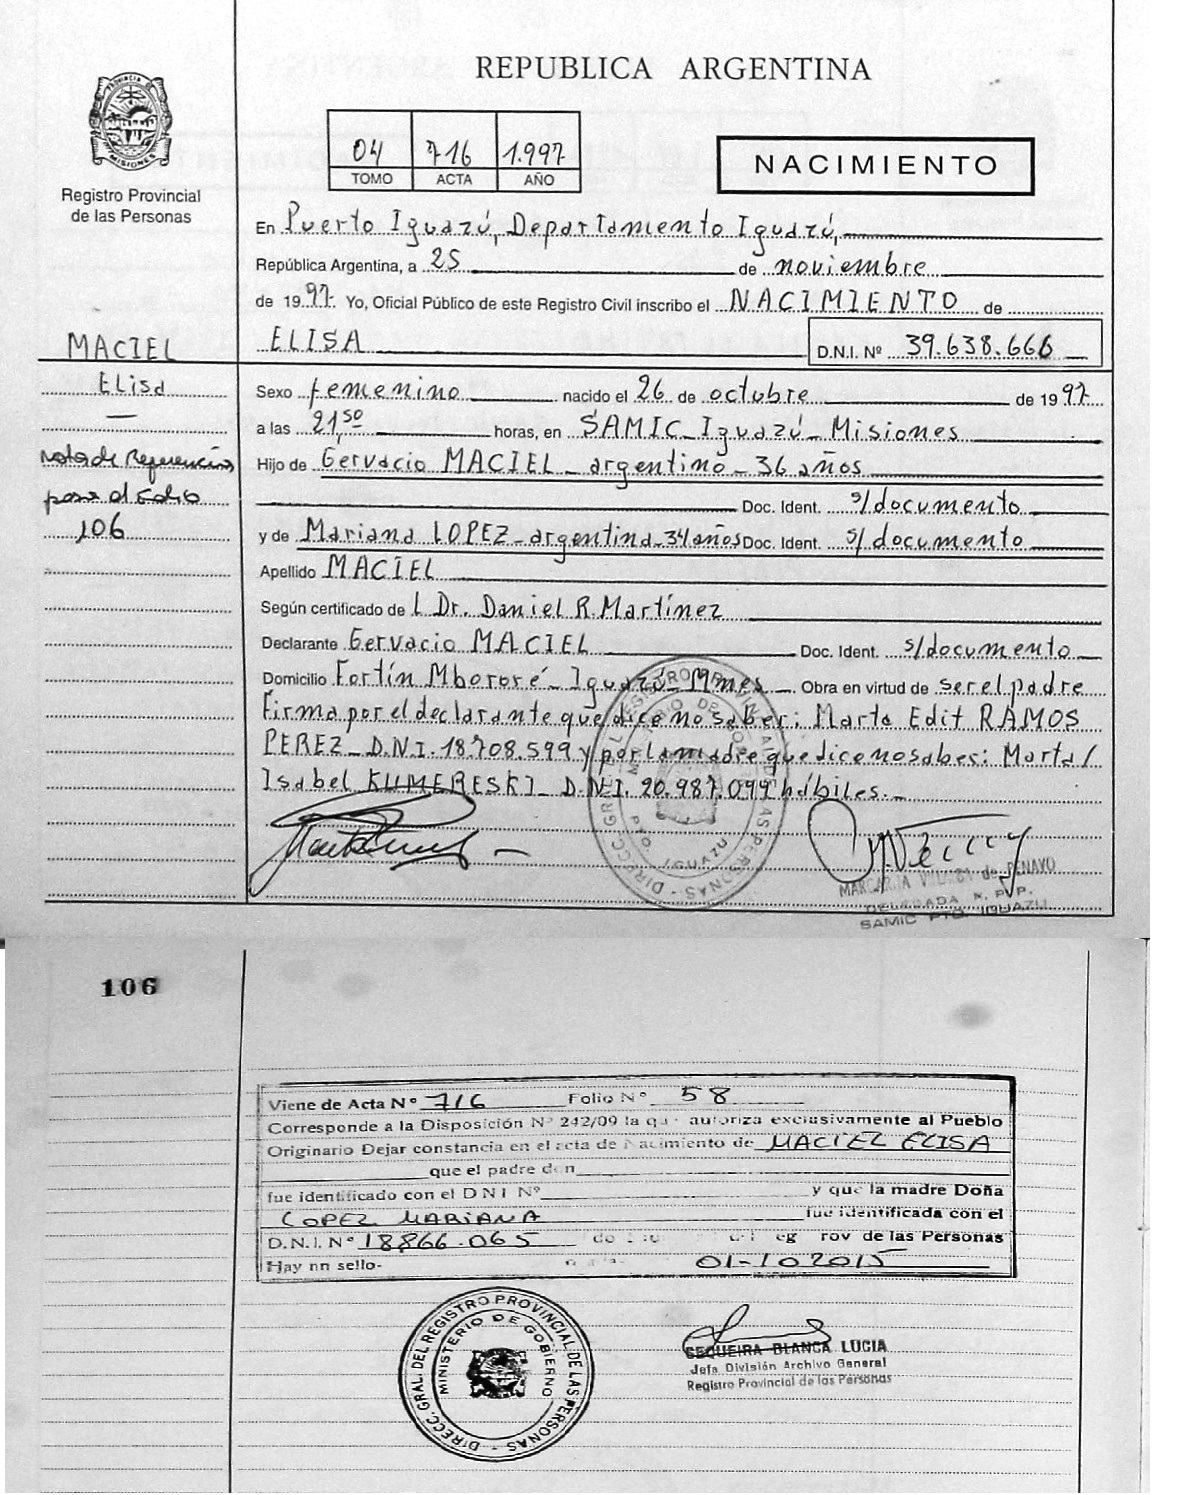 REPUBLICA ARGENTINA
PROVINCIA DE
MISIONES
Registro Provincial
de las Personas
04 716 1.997
TOMO ACTA AÑO
NACIMIENTO
En Puerto Iguazú, Departamento Iguazú,
República Argentina, a 25 de noviembre
de 1997. Yo, Oficial Público de este Registro Civil inscribo el NACIMIENTO de
ELISA
D.N.I. Nº 39.638.666
MACIEL
Elisa
—
nota de Referencia
para el Folio
106
Sexo femenino nacido el 26 de octubre de 1997
a las 21,50 horas, en SAMIC_Iguazú_Misiones
Hijo de Gervacio MACIEL_argentino_36 años
Doc. Ident. s/documento
y de Mariana LOPEZ_argentina_34 años Doc. Ident. s/documento
Apellido MACIEL
Según certificado de l Dr. Daniel R. Martínez
Declarante Gervacio MACIEL Doc. Ident. s/documento
Domicilio Fortín Mbororé_Iguazú_Mnes_. Obra en virtud de ser el padre
Firma por el declarante que dice no saber: Marta Edit RAMOS
PEREZ_D.N.I. 18.708.599 y por la madre que dice no saber: Marta/
Isabel KUMERESKI_D.N.I. 20.987.099 hábiles._
DIRECC. GRAL. DEL REGISTRO PROVINCIAL DE LAS PERSONAS
IGUAZU
MARGARITA de PENAYO
DELEGADA R. P. P.
SAMIC PTO. IGUAZU
106
Viene de Acta Nº 716 Folio Nº 58
Corresponde a la Disposición Nº 242/09 la que autoriza exclusivamente al Pueblo
Originario Dejar constancia en el acta de Nacimiento de MACIEL ELISA
que el padre don
fue identificado con el D N I Nº y que la madre Doña
LOPEZ MARIANA fue identificada con el
D.N.I. Nº 18866.065 rov de las Personas
Hay nn sello- 01-10 2015
DIRECC. GRAL. DEL REGISTRO PROVINCIAL DE LAS PERSONAS
MINISTERIO DE GOBIERNO
SEQUEIRA BLANCA LUCIA
Jefa División Archivo General
Registro Provincial de las Personas